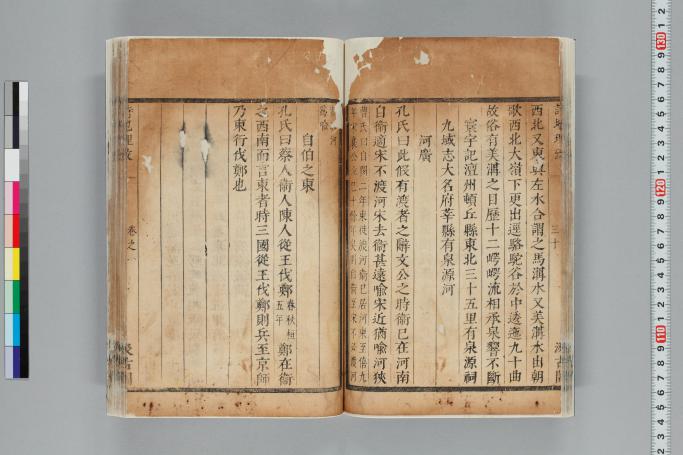 西北又東與左水合謂之馬溝水又美溝水出朝
歌西北大嶺下更出逕駱駝谷於中逶迤九十曲
故俗有美溝之目歷十二崿崿流相承泉響不斷
寰宇記澶州頓丘縣東北三十五里有泉源祠
九域志大名府莘縣有泉源河
河廣
孔氏曰此假有渡者之辭文公之時衞已在河南
自衞適宋不渡河宋去衞甚遠喻宋近猶喻河狹
自伯之東
孔氏曰蔡人衞人陳人從王伐鄭春秋桓五年鄭在衞
之西南而言東者時三國從王伐鄭則兵至京師
乃東行伐鄭也
卷之一